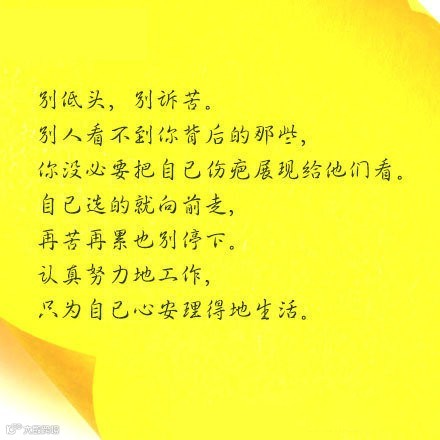 别低头，别诉苦。
别人看不到你背后的那些，
你没必要把自己伤疤展现给他们看。
自己选的就向前走，
再苦再累也别停下。
认真努力地工作，
只为自己心安理得地生活。